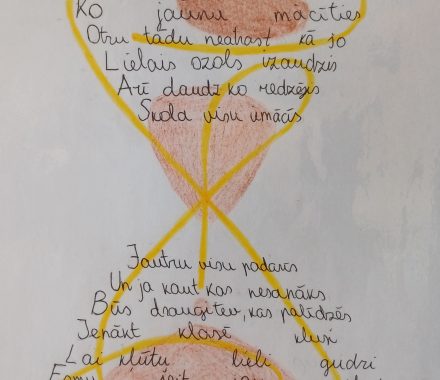 Ko jaunu mācīties
Otru tādu neatrast kā šo
Lielais ozols izaudzis
Arī daudz ko redzējis
Skola visu umācīs
Jautru visu padarīs
Un ja kaut kas nesanāks
Būs draugiten, kas palīdzēs
Ienākt klasē klusi
Lai kļūtu lieli gudri